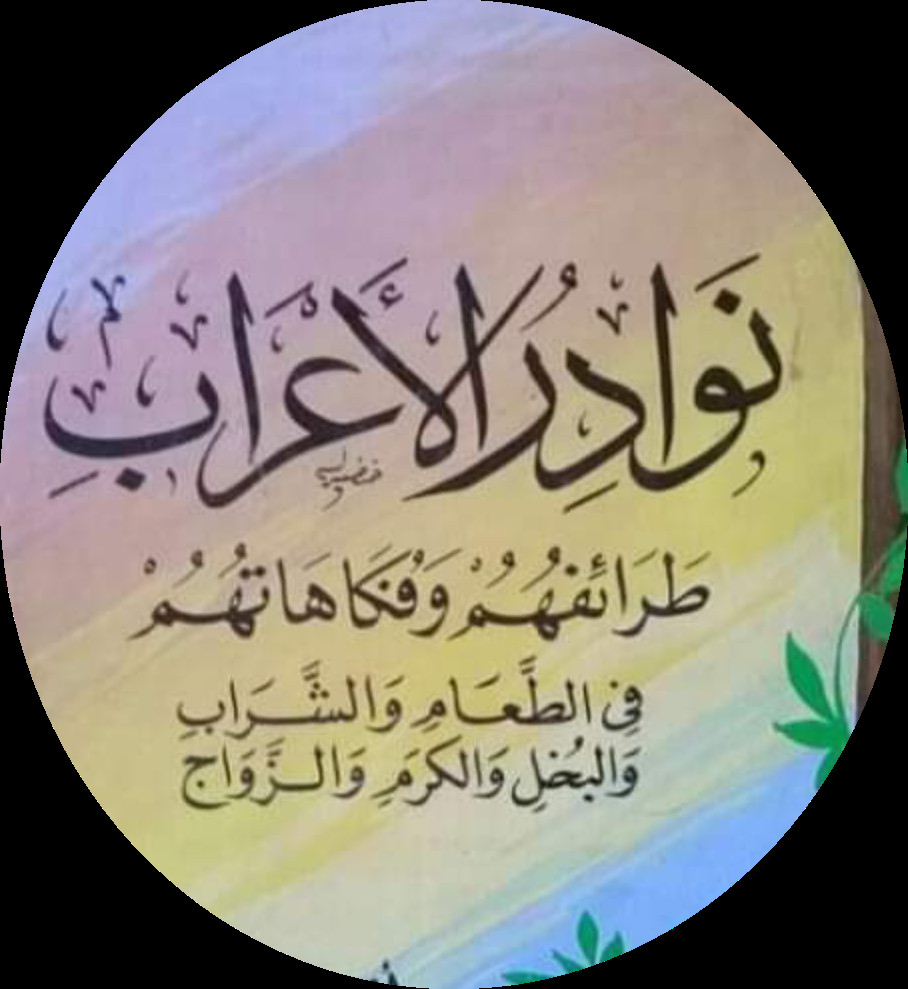 نَوَادِرُ الأَعْرَابِ
طَرَائِفُهُمْ وَفُكَاهَاتُهُمْ
فِي الطَّعَامِ وَالشَّرَابِ
وَالبُخْلِ وَالكَرَمِ وَالزَّوَاج